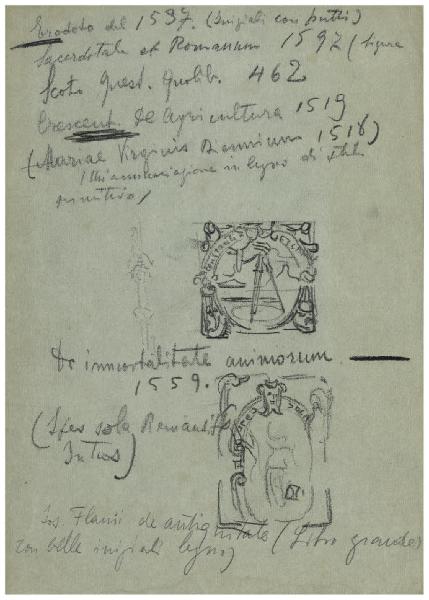 Erodoto del 1537. (Iniziali con putti)
Sacerdotale et Romanum 1597 (figure
Scoto Quest. Quolib. 462
Crescent. De Agricultura 1519
(Mariae Virginis 1518)
in legno di
primitivo)
De immortalitate animorum
1559.
(Spes sola Remansit
Intus)
Jos. Flavii de antiquitate (Libro grande
con belle iniziali legno)